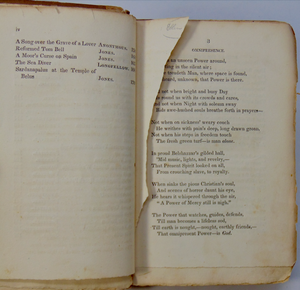 iv
A Song over the Grave of a Lover ANONYMOUS.
Reformed Tom Bell JONES.
A Moor's Curse on Spain JONES.
The Sea Diver LONGFELLOW.
Sardanapalus at the Temple of
Belus JONES.
OMNIPRESENCE.
an unseen Power around,
in the silent air;
treadeth Man, where space is found,
unseen, that Power is there.
not when bright and busy Day
round us with its crowds and cares,
not when Night with solemn sway
awe-hushed souls breathe forth in prayers—
Not when on sickness' weary couch
He writhes with pain's deep, long drawn groan,
Not when his steps in freedom touch
The fresh green turf—is man alone.
In proud Belshazzar's gilded hall,
'Mid music, lights, and revelry,—
That Present Spirit looked on all,
From crouching slave, to royalty.
When sinks the pious Christian's soul,
And scenes of horror daunt his eye,
He hears it whispered through the air,
"A Power of Mercy still is nigh."
The Power that watches, guides, defends,
Till man becomes a lifeless sod,
Till earth is nought,—nought, earthly friends,—
That omnipresent Power—is God.